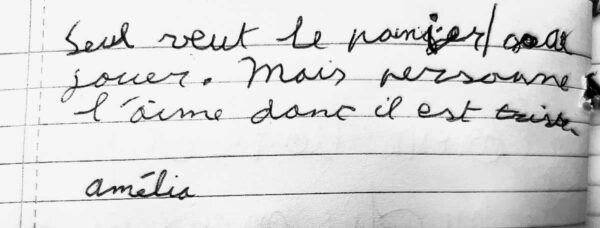 Seul veut le panier/
jouer. Mais personne
l'aime donc il est triste.
amélia